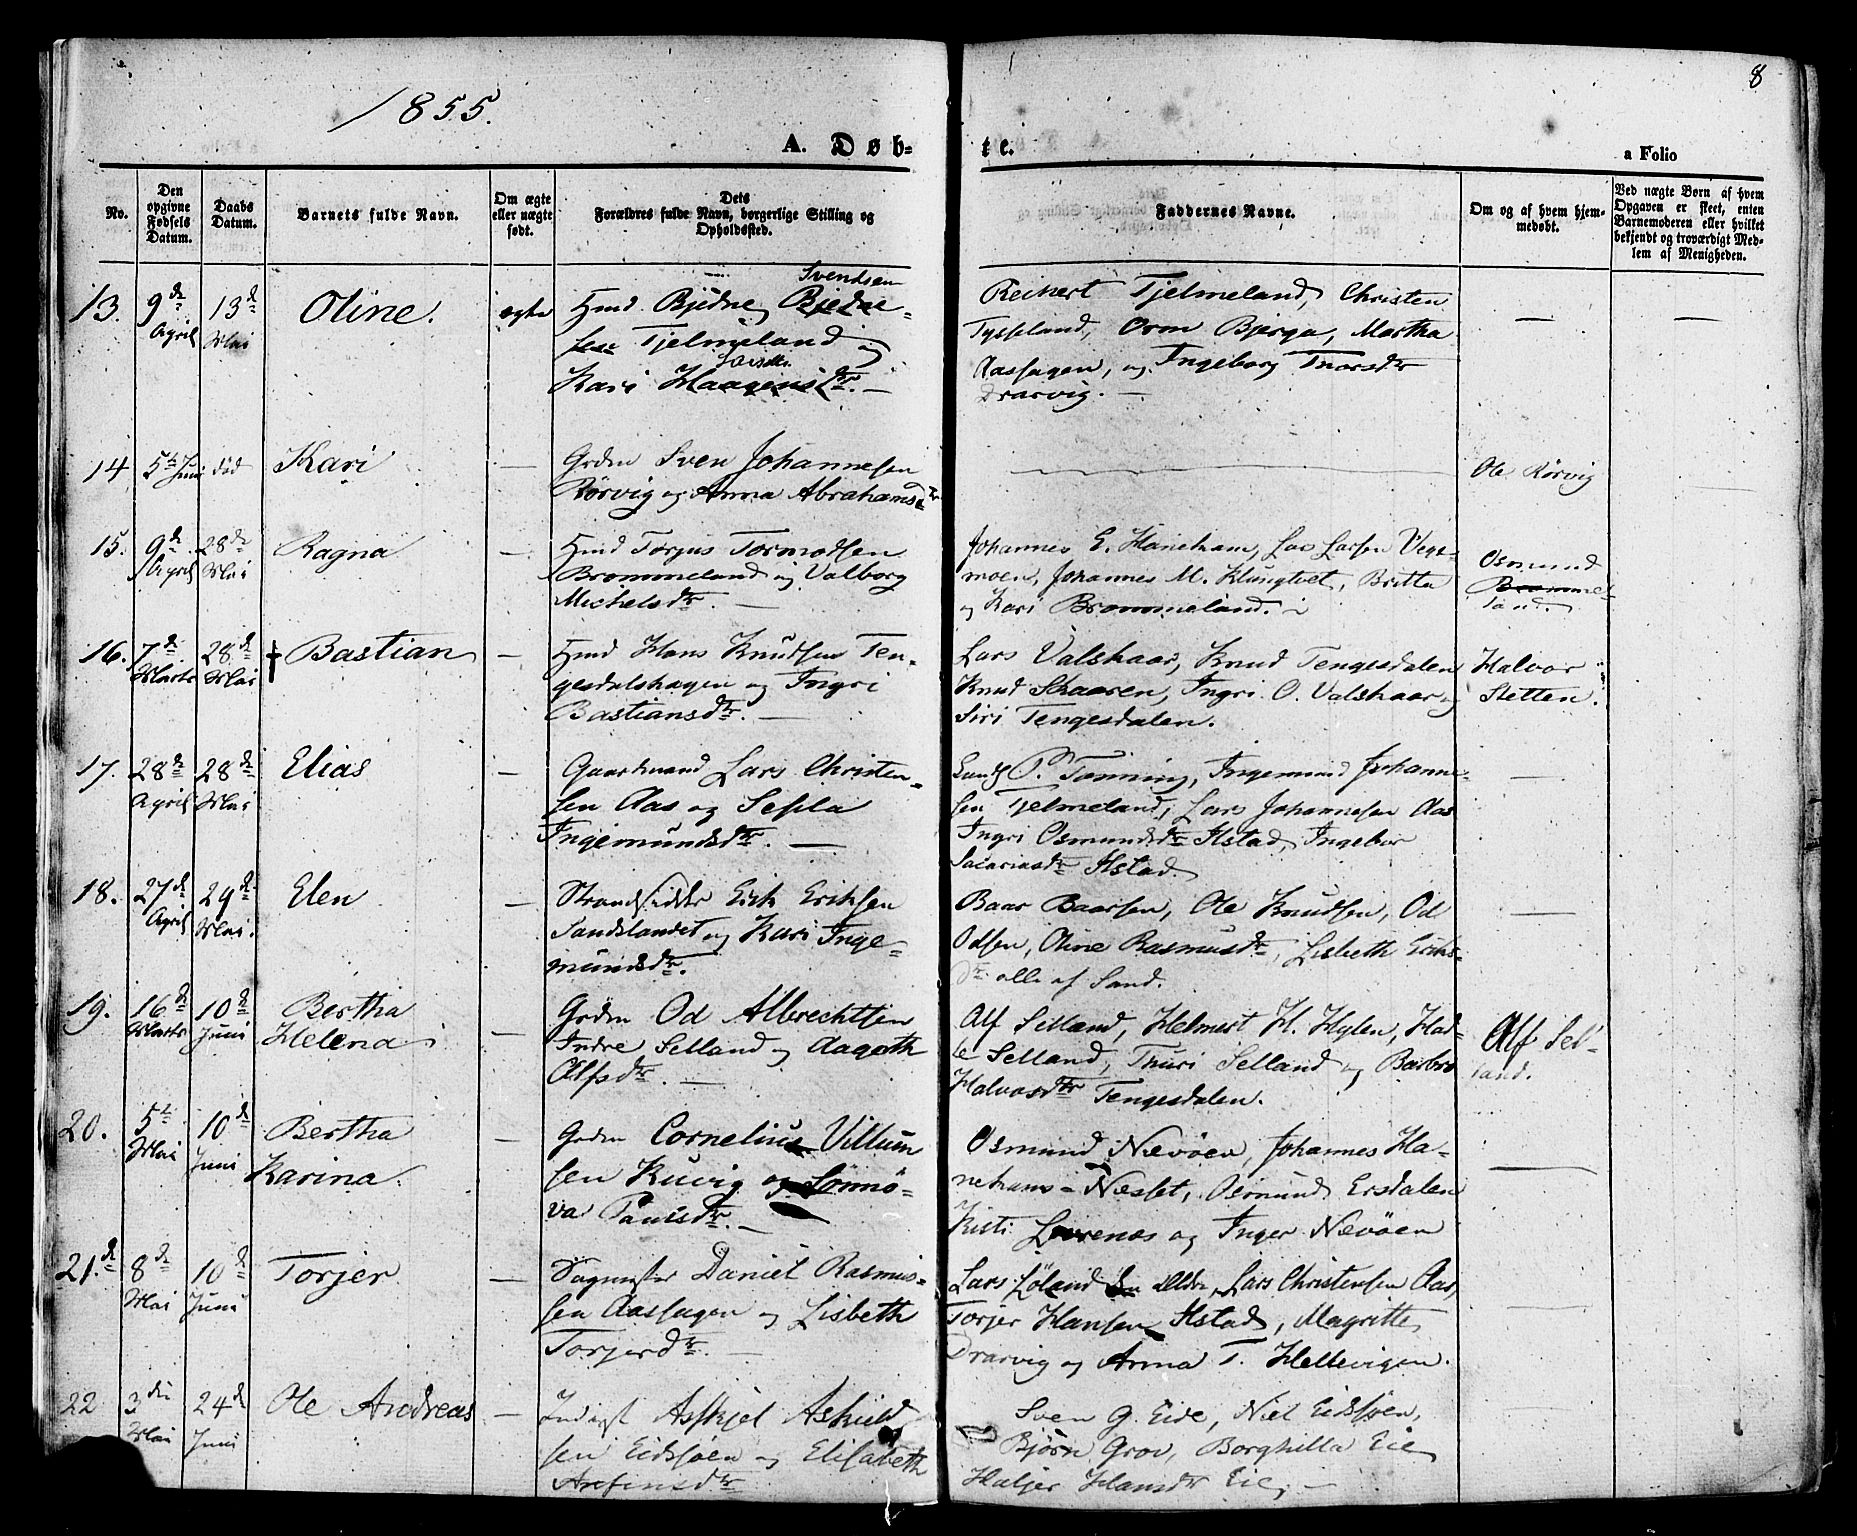 8
1855.
A. Døb-
te.
a Folio
No.
Den opgivne Fødsels Datum.
Daabs Datum.
Barnets fulde Navn.
Om ægte eller uægte født.
Dets Forældres fulde Navn, borgerlige Stilling og Opholdssted.
Faddernes Navne.
Om og af hvem hjemmedøbt.
Ved uægte Børn af hvem Opgaven er skeet, enten Barnemoderen eller hvilket bekjendt og troværdigt Medlem af Menigheden.
13. 9de April 13de Mai
Oline.
ægte
Svendsen
Hmd Bjødne Bjødne-
sen Tjelmeland og
Larsdtr.
Kari Haagensdtr. —
Reinert Tjelmeland, Christen
Tysseland, Orm Bjerga, Martha
Aashagen, og Ingeborg Thorsdtr
Drarvig. —
—
—
14 5te Juni død
Kari
—
Grdm Sven Johannesen
Rørvig og Anna Abrahamsdtr
Ole Rørvig
—
15. 9de April 28de Mai
Ragna
—
Hmd Torjus Tormodsen
Brommeland og Valborg
Michelsdtr. —
Johannes E. Haneham, Lars Larsen Vege-
moen, Johannes M. Klungtvet, Britta
og Kari Brommeland.
Osmund
Bromme-
land.
16. 7de Marts 28de Mai
† Bastian
—
Hmd Hans Knudsen Ten-
gesdalshagen og Ingri
Bastiansdtr. —
Lars Valshaar, Knud Tengesdalen
Knud Skaaren, Ingri O. Valshaar og
Siri Tengesdalen.
Halvor
Stetten.
17. 28de April 28de Mai
Elias
—
Gaardmand Lars Christen-
sen Aas og Sesela
Ingemundsdtr. —
P. Tanning, Ingemund Johanne-
sen Tjelmeland, Lars Johannesen Aas
Ingri Osmundsdtr Ilstad, Ingebor
Sacariasdtr Ilstad.
—
18. 27de April 29de Mai.
Elen
—
Strandsidder Erik Eriksen
Sandslandet og Kari Inge-
mundsdtr.
Baar Baarsen, Ole Knudsen, Od
Odsen, Oline Rasmusdtr, Lisbeth Eriks-
dtr alle af Sand.
—
19. 16de Marts 10de Juni
Bertha
Helena
—
Grdm Od Albrechtsen
Indre Selland og Aagoth
Alfsdtr. —
Alf Selland, Helmert H. Hylen, Had-
le Selland, Thuri Selland og Barbro
Halvorsdtr Tengesdalen.
Alf Sel-
land.
20. 5te Mai 10de Juni
Bertha
Karina.
—
Grdm Cornelius Villum
sen Kuvig og Sønnø-
va Paulsdtr. —
Osmund Nævøen, Johannes Ha-
nehams-Næsset, Osmund Ersdalen
Kisti Lovrenes og Inger Nævøen
—
21. 8de Mai 10de Juni
Torjer
—
Sagmester Daniel Rasmus-
sen Aashagen og Lisbeth
Torjerdtr. —
Lars Løland den Ældre, Lars Christensen Aas,
Torjer Hansen Ilstad, Magritte
Drarvig og Anna T. Hellevigen.
—
22 3die Mai 24de Juni
Ole Andreas
—
Inderst Asskjel Askild
sen Eidsøen og Elisabeth
Arsensdtr
Sven G. Eide, Niel Eidsøen,
Bjørn Grov, Borghilla Eie
Haljer Hansdtr Eie, —